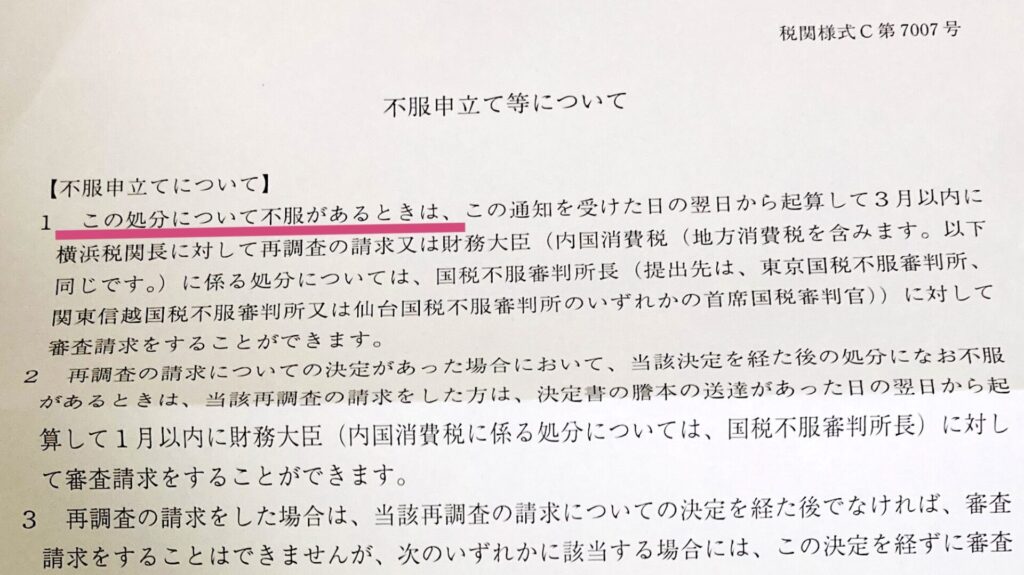 税関様式C第7007号
不服申立て等について
【不服申立てについて】
1 この処分について不服があるときは、この通知を受けた日の翌日から起算して3月以内に
横浜税関長に対して再調査の請求又は財務大臣（内国消費税（地方消費税を含みます。以下
同じです。）に係る処分については、国税不服審判所長（提出先は、東京国税不服審判所、
関東信越国税不服審判所又は仙台国税不服審判所のいずれかの首席国税審判官））に対して
審査請求をすることができます。
2 再調査の請求についての決定があった場合において、当該決定を経た後の処分になお不服
があるときは、当該再調査の請求をした方は、決定書の謄本の送達があった日の翌日から起
算して1月以内に財務大臣（内国消費税に係る処分については、国税不服審判所長）に対し
て審査請求をすることができます。
3 再調査の請求をした場合は、当該再調査の請求についての決定を経た後でなければ、審査
請求をすることはできませんが、次のいずれかに該当する場合には、この決定を経ずに審査